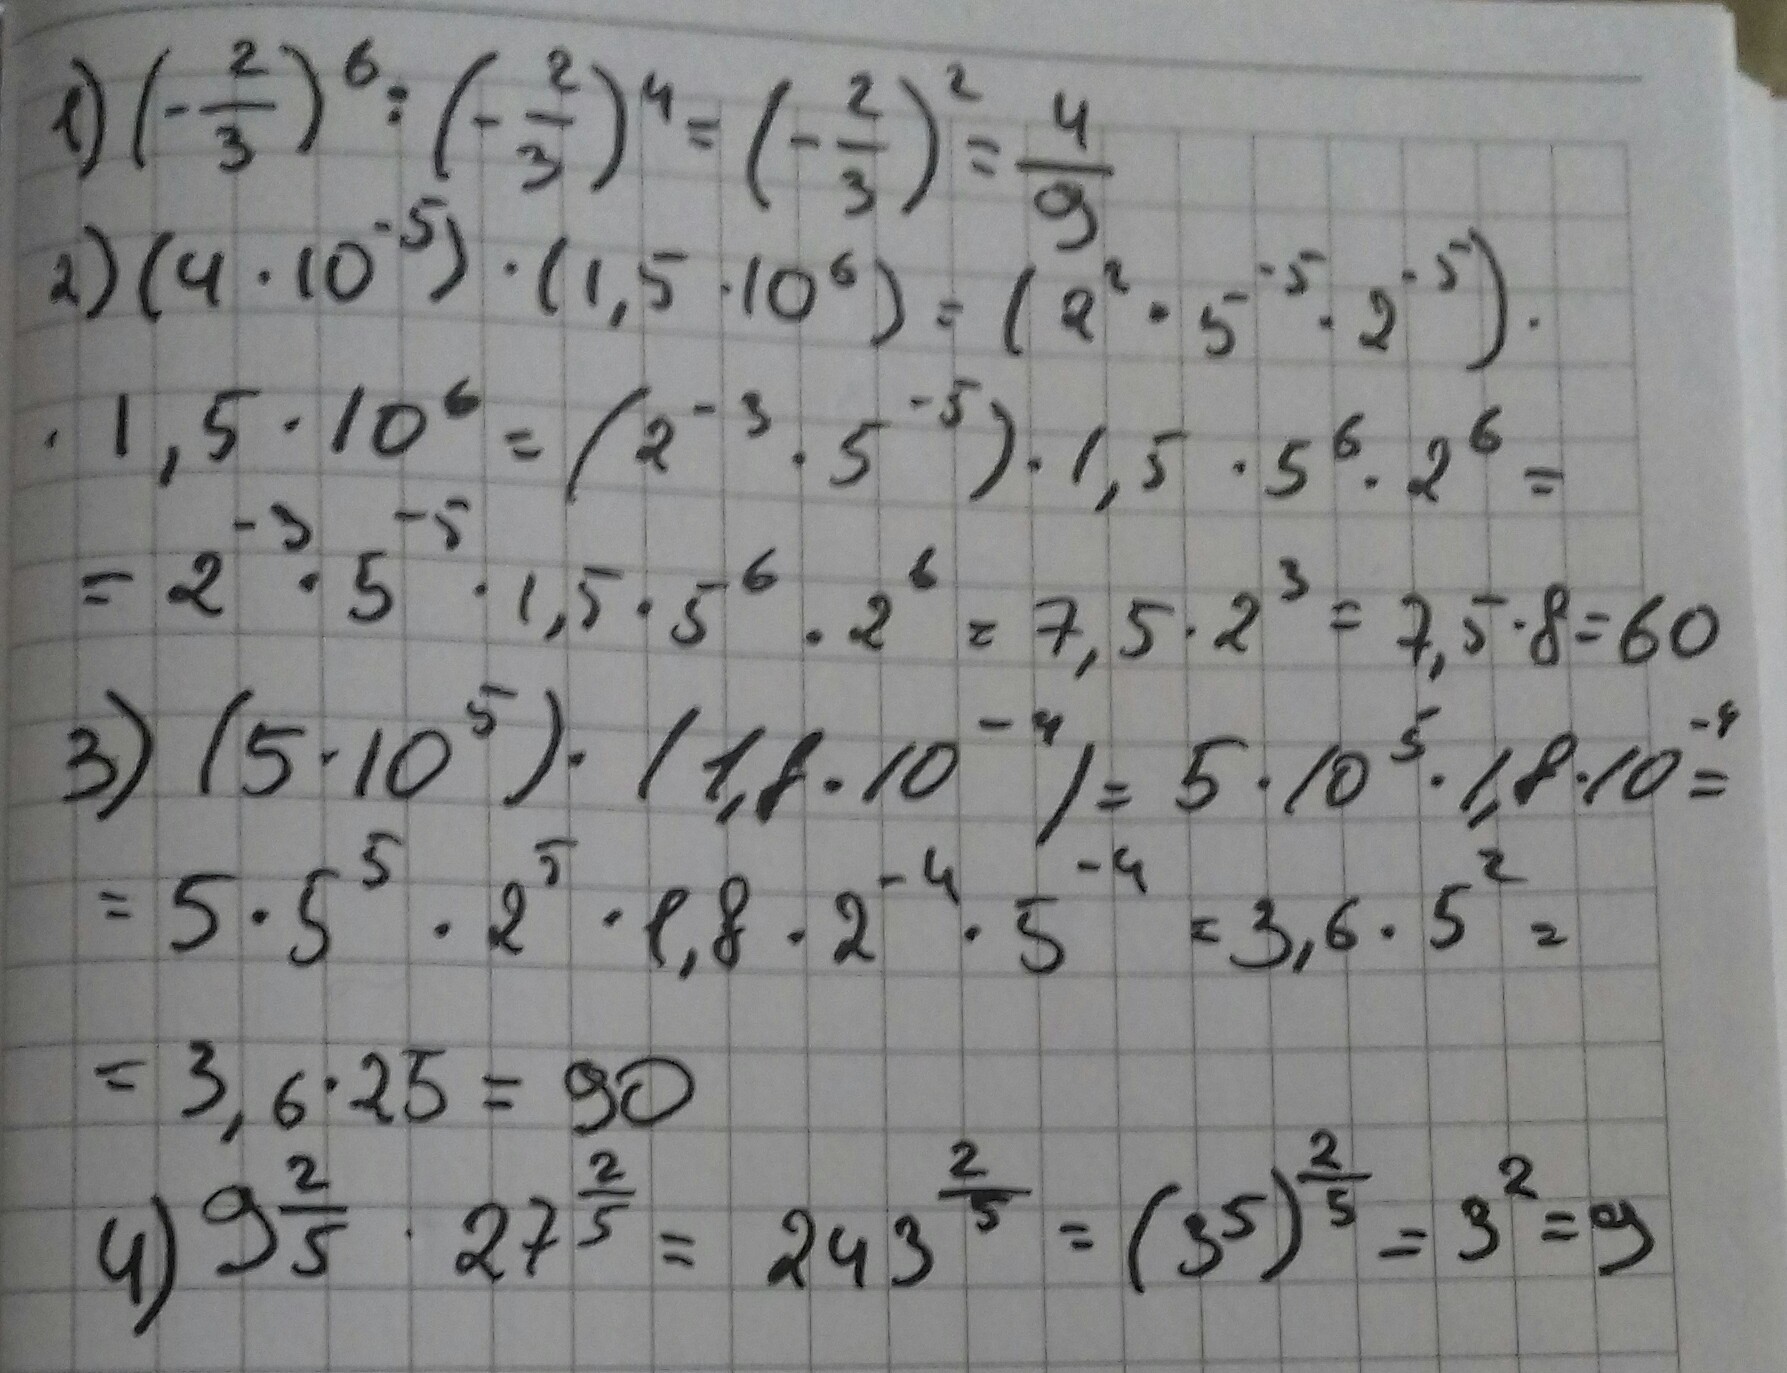 1) (-2/3)^6 : (-2/3)^4 = (-2/3)^2 = 4/9
2) (4 · 10^-5) · (1,5 · 10^6) = (2^2 · 5^-5 · 2^-5) ·
· 1,5 · 10^6 = (2^-3 · 5^-5) · 1,5 · 5^6 · 2^6 =
= 2^-3 · 5^-5 · 1,5 · 5^6 · 2^6 = 7,5 · 2^3 = 7,5 · 8 = 60
3) (5 · 10^5) · (1,8 · 10^-4) = 5 · 10^5 · 1,8 · 10^-4 =
= 5 · 5^5 · 2^5 · 1,8 · 2^-4 · 5^-4 = 3,6 · 5^2 =
= 3,6 · 25 = 90
4) 9^2/5 · 27^2/5 = 243^2/5 = (3^5)^2/5 = 3^2 = 9